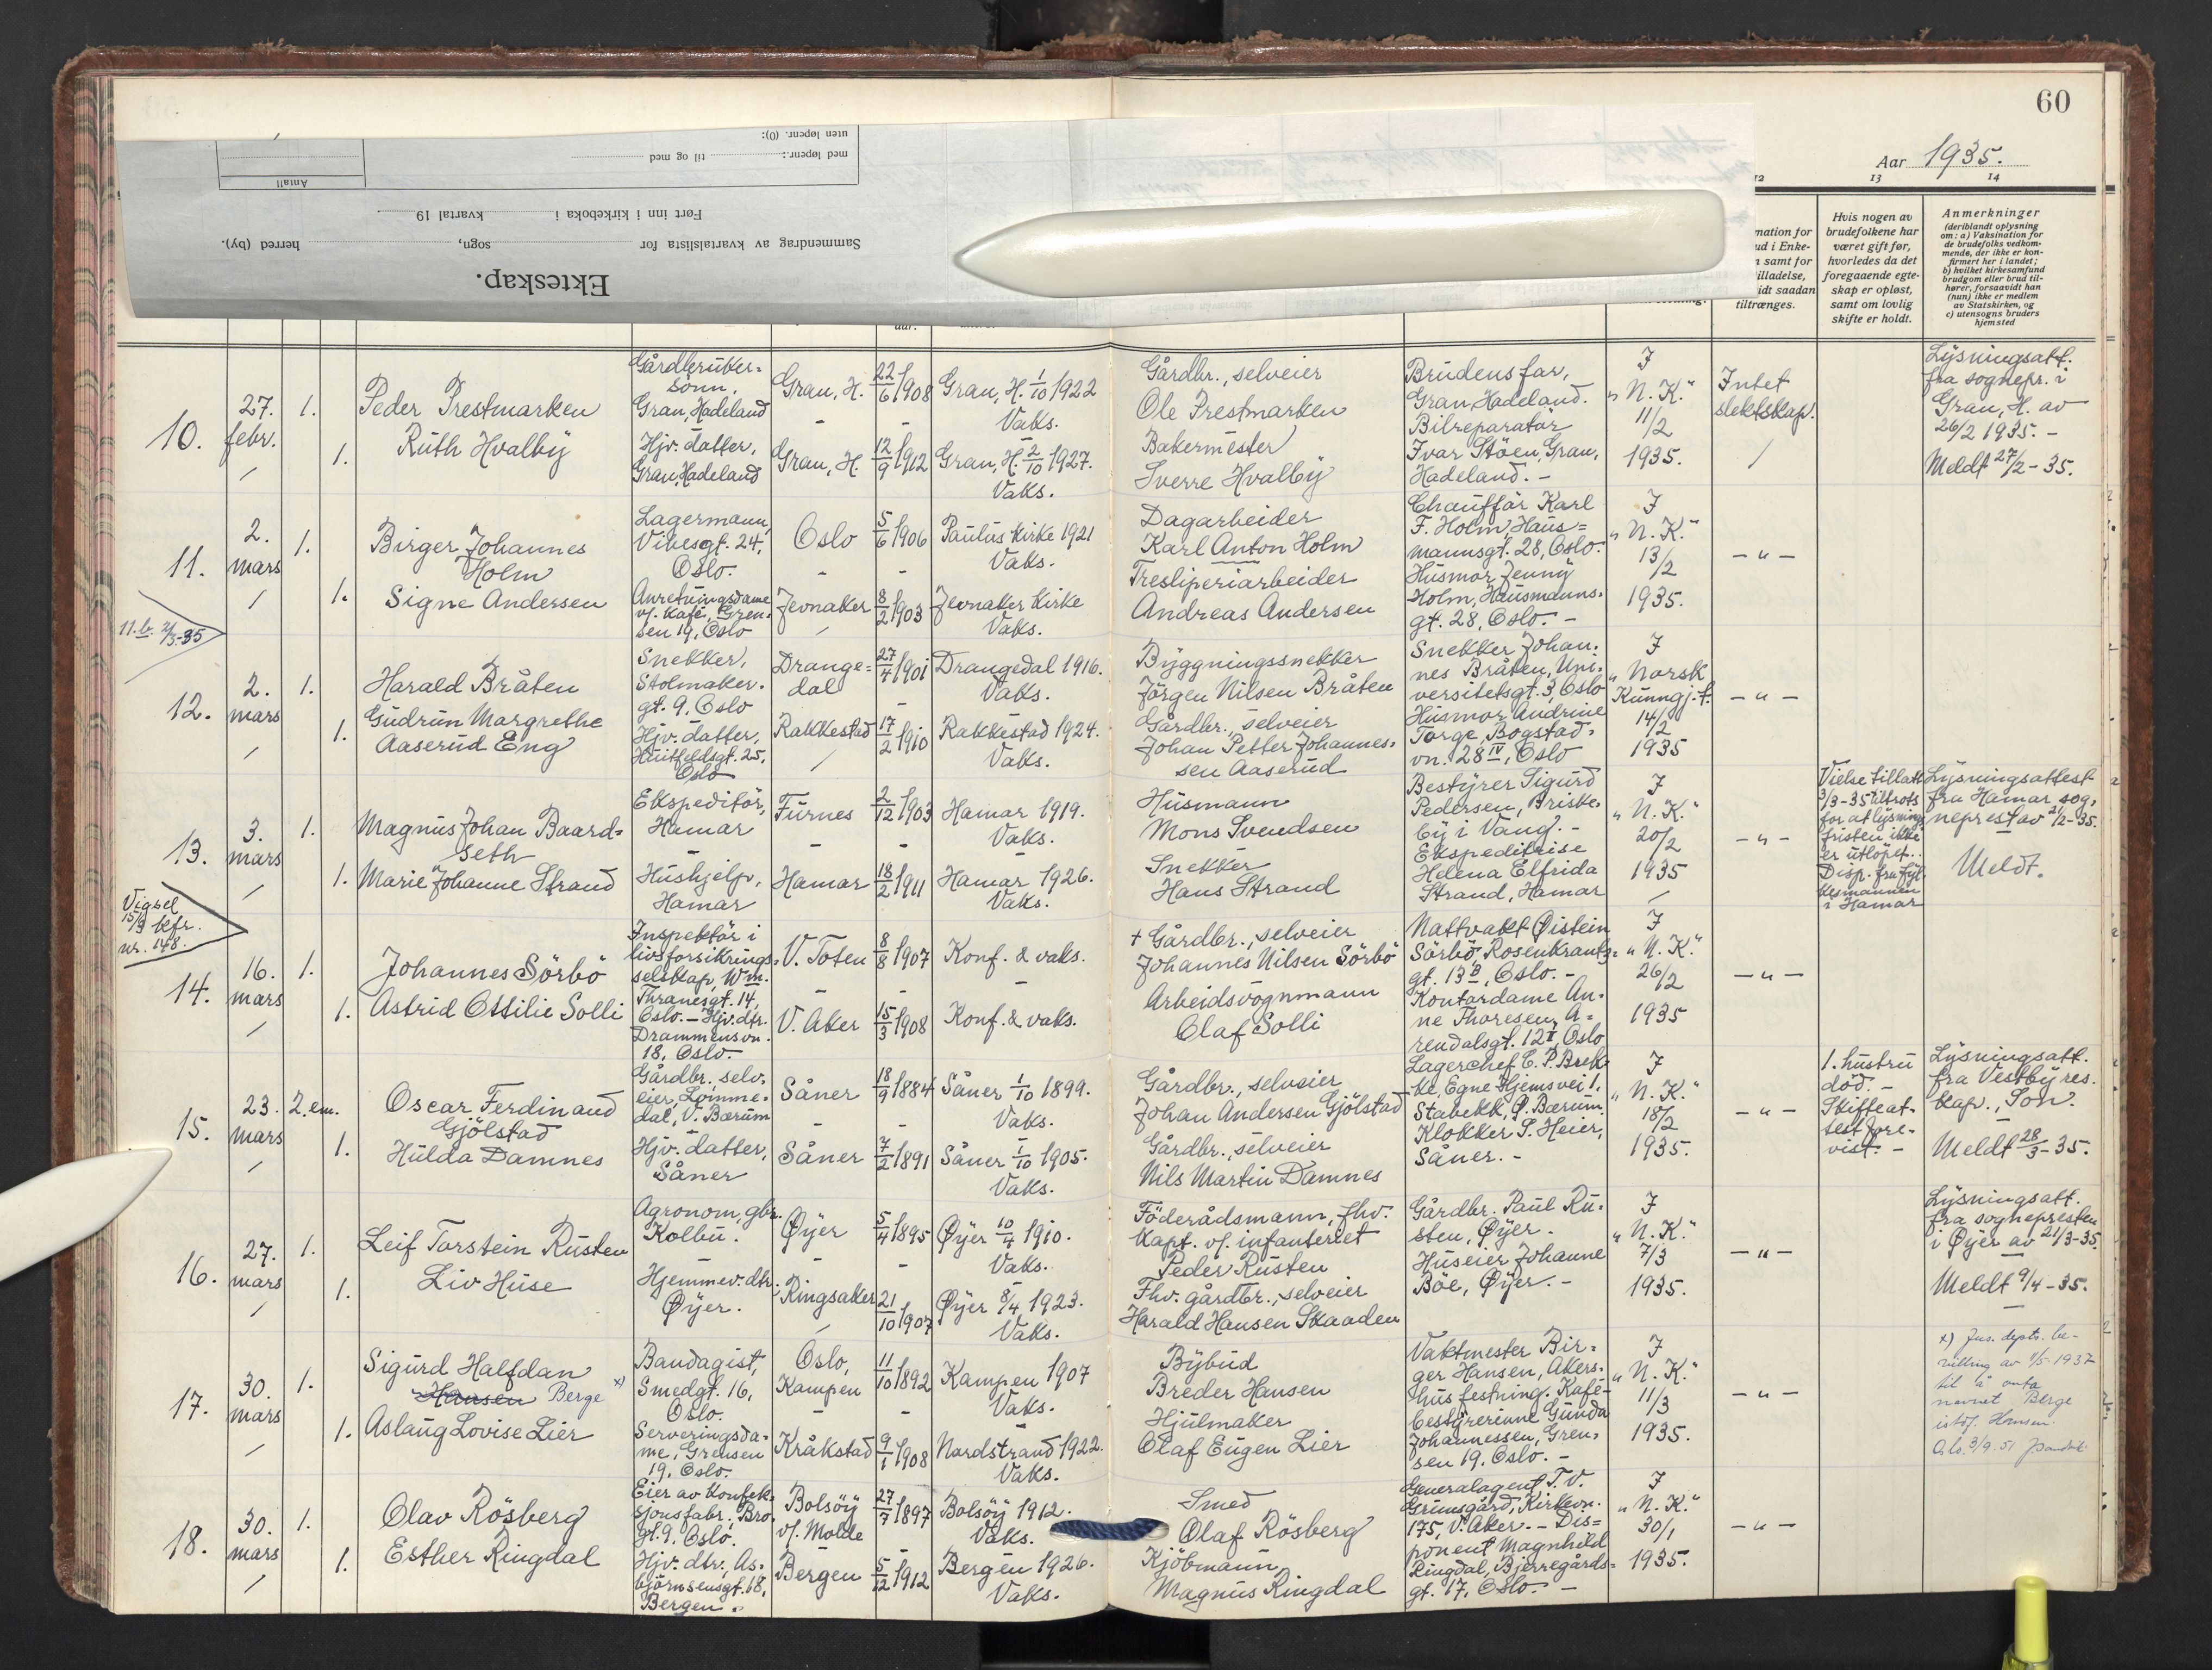 60
Aar 1935.
uten løpenr. (0):
med løpenr.: til og med
Antall
Ført inn i kirkeboka i kvartal 19
Sammendrag av kvartalslista for sogn, herred (by).
Ekteskap.
12 13 14
Hvis nogen av
brudefolkene har
været gift før,
hvorledes da det
foregaaende egte-
skap er opløst,
samt om lovlig
skifte er holdt.
Anmerkninger
(deriblandt oplysning
om: a) Vaksination for
de brudefolks vedkom-
mende, der ikke er kon-
firmert her i landet;
b) hvilket kirkesamfund
brudgom eller brud til-
hører, forsaavidt han
(hun) ikke er medlem
av Statskirken, og
c) utensogns bruders
hjemsted
10.
27.
febr.
1.
1.
Peder Prestmarken
Ruth Hvalby
Gårdbruker-
sönn,
Gran, Hadeland
Hjv. datter,
Gran, Hadeland
Gran, H.
Gran, H.
22/6 1908
12/9 1912
Gran, H. 1/10 1922
Vaks.
Gran, H. 2/10 1927.
Vaks.
Gårdbr., selveier
Ole Prestmarken
Bakermester
Sverre Hvalby
Brudens far,
Gran, Hadeland.
Bilreparatör
Ivar Stöen, Gran,
Hadeland. -
I
"N. K."
11/2
1935.
Intet
slektskap.
Lysningsatt.
fra sognepr. i
Gran, H. av
26/2 1935. -
Meldt 27/2 - 35.
11.
2.
mars
1.
1.
Birger Johannes
Holm
Signe Andersen
Lagermann,
Vibesgt. 24,
Oslo.
Anretningsdame
v/. Kafé, Gren-
sen 19, Oslo
Oslo
Jevnaker
5/6 1906
8/2 1903
Paulus Kirke 1921
Vaks.
Jevnaker Kirke
Vaks.
Dagarbeider
Karl Anton Holm
Tresliperiarbeider
Andreas Andersen
Chaufför Karl
F. Holm, Haus=
mannsgt. 28, Oslo.
Husmor Jenny
Holm, Hausmanns-
gt. 28, Oslo. -
I
"N. K."
13/2
1935.
- " -
11.b. 2/3-35
12.
2.
mars
1.
1.
Harald Bråten
Gudrun Margrethe
Aaserud Eng
Snekker,
Stolmaker-
gt. 9, Oslo
Hjv. datter,
Huitfeldsgt. 25,
Oslo
Drange=
dal
Rakkestad
27/4 1901
17/2 1910
Drangedal 1916.
Vaks.
Rakkestad 1924.
Vaks.
Byggningssnekker
Jörgen Nilsen Bråten
Gårdbr., selveier
Johan Petter Johannes-
sen Aaserud
Snekker Johan-
nes Bråten, Uni-
versitetsgt. 3, Oslo
Husmor Andrine
Torge, Bogstad-
vn. 28 IV, Oslo
I
"Norsk
Kunngj.t.
14/2
1935
- " -
13.
3.
mars
1.
1.
Magnus Johan Baard=
seth
Marie Johanne Strand
Ekspeditör,
Hamar
Hushjelp,
Hamar
Furnes
Hamar
2/12 1903
18/2 1911
Hamar 1919.
Vaks.
Hamar 1926.
Vaks.
Husmann
Mons Svendsen
Snekker
Hans Strand
Bestyrer Sigurd
Pedersen, Briske-
by i Vang. -
Ekspeditrise
Helena Elfrida
Strand, Hamar
I
"N. K."
20/2
1935
- " -
Vielse tillatt
3/3-35 tiltrots
for at lysnings
fristen ikke
er utlöpet.
Disp. fra fyl-
kesmannen
i Hamar
Lysningsattest
fra Hamar sog-
neprest av 2/2-35.
Meldt.
Vigsel
15/3 kfr.
nr. 148.
14.
16.
mars
1.
1.
Johannes Sörbö
Astrid Ottilie Solli
Inspektör i
livsforsikrings-
selskap, Wm.
Thranesgt. 14,
Oslo. - Hjv. dtr.
Drammensvn.
18, Oslo.
V. Toten
V. Aker
8/8 1907
15/3 1908
Konf. & vaks.
Konf. & vaks.
+ Gårdbr., selveier
Johannes Nilsen Sörbö
Arbeidsvognmann
Olaf Solli
Nattvakt Øistein
Sörbö, Rosenkrantz-
gt. 13 B, Oslo. -
Kontordame An-
ne Thoresen, A-
rendalsgt. 12 I, Oslo
I
"N. K."
26/2
1935
- " -
15.
23.
mars
2. em.
1.
Oscar Ferdinand
Gjölstad
Hulda Damnes
Gårdbr., selv-
eier, Lomme-
dal, V. Bærum
Hjv. datter,
Såner
Såner
Såner
18/9 1884
7/2 1891
Såner 1/10 1899.
Vaks.
Såner 1/10 1905.
Vaks.
Gårdbr., selveier
Johan Andersen Gjölstad
Gårdbr., selveier
Nils Martin Damnes
Lagerchef C. P. Brek-
ke, Egne Hjemsvei 1,
Stabekk, Ø. Bærum.
Klokker S. Heier,
Såner. -
I
"N. K."
18/2
1935.
- " -
1. hustru
död. -
Skifteat-
test fore-
vist. -
Lysningsatt.
fra Vestby res.
kap., Son.
Meldt 28/3 - 35.
16.
27.
mars
1.
1.
Leif Torstein Rusten
Liv Huse
Agronom, gbr.
Kolbu.
Hjemmev. dtr.
Øyer.
Øyer
Ringsaker
5/4 1895
21/10 1907
Øyer 10/4 1910.
Vaks.
Øyer 8/4 1923.
Vaks.
Föderådsmann, fhv.
kapt. v/. infanteriet
Peder Rusten
Fhv. gårdbr., selveier
Harald Hansen Skaaden
Gårdbr. Paul Ru-
sten, Øyer.
Huseier Johanne
Böe, Øyer. -
I
"N. K."
7/3
1935.
- " -
Lysningsatt.
fra sognepresten
i Øyer av 21/3-35.
Meldt 9/4 - 35.
17.
30.
mars
1.
1.
Sigurd Halfdan
Hansen Berge x)
Aslaug Lovise Lier
Bandagist,
Smedgt. 16,
Oslo.
Serveringsda-
me, Grensen
19, Oslo.
Oslo,
Kampen
Kråkstad
11/10 1892
9/1 1908
Kampen 1907
Vaks.
Nordstrand 1922.
Vaks.
Bybud
Breder Hansen
Hjulmaker
Olaf Eugen Lier
Vaktmester Bir-
ger Hansen, Akers-
hus festning. Kafé-
bestyrerinne Gunda
Johannessen, Gren-
sen 19, Oslo. -
I
"N. K."
11/3
1935.
- " -
x) Jus. dept. be-
villing av 1/5-1937
til å anta
navnet Berge
istdf. Hansen.
Oslo 3/9 51
18.
30.
mars
1.
1.
Olav Rösberg
Esther Ringdal
Eier av konfek-
sjonsfabr., Bro-
gt. 9, Oslo.
Hjv. dtr., As-
björnsensgt. 18,
Bergen.
Bolsöy
v/. Molde
Bergen
27/7 1897
5/12 1912
Bolsöy 1912.
Vaks.
Bergen 1926.
Vaks.
Smed
Olaf Rösberg
Kjöbmann
Magnus Ringdal
Generalagent T. V.
Grimsgård, Kirkevn.
175, V. Aker. - Dis=
ponent Magnhild
Ringdal, Bjerregårds-
gt. 17, Oslo. -
I
"N. K."
30/1
1935.
- " -